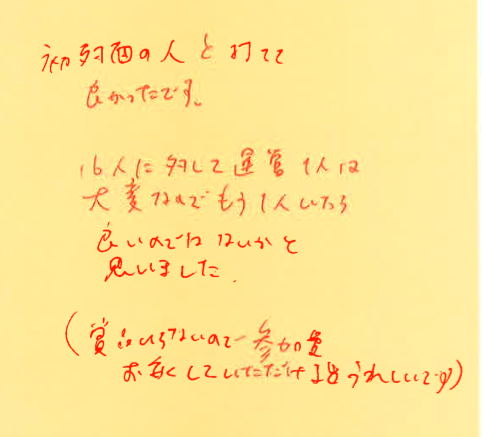 初対面の人と打てて
良かったです。
16人に対して運営1人は
大変なのでもう1人いたら
良いのではないかと
思いました。
(賞品いらないので参加費
お安くしていただけるとうれしいです)